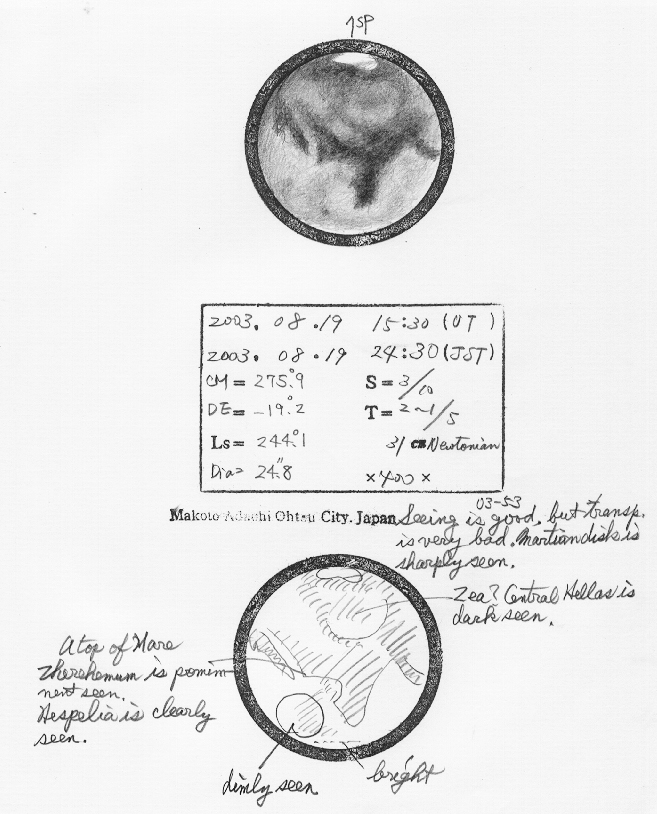 ↑SP
2003. 08.19 15:30 (UT)
2003. 08.19 24:30 (JST)
CM= 275.°9 S= 3/10
DE= -19.°2 T= 2~1/5
Ls= 244.°1 31 cm Newtonian
Dia= 24."8 ×400 ×
03-53
Makoto Adachi Ohtsu City. Japan
Seeing is good, but transp.
is very bad. Martian disk is
sharply seen.
Zea? Central Hellas is
dark seen.
A top of Mare
Therehemum is promim
nent seen.
Hespelia is clearly
seen.
dimly seen
bright